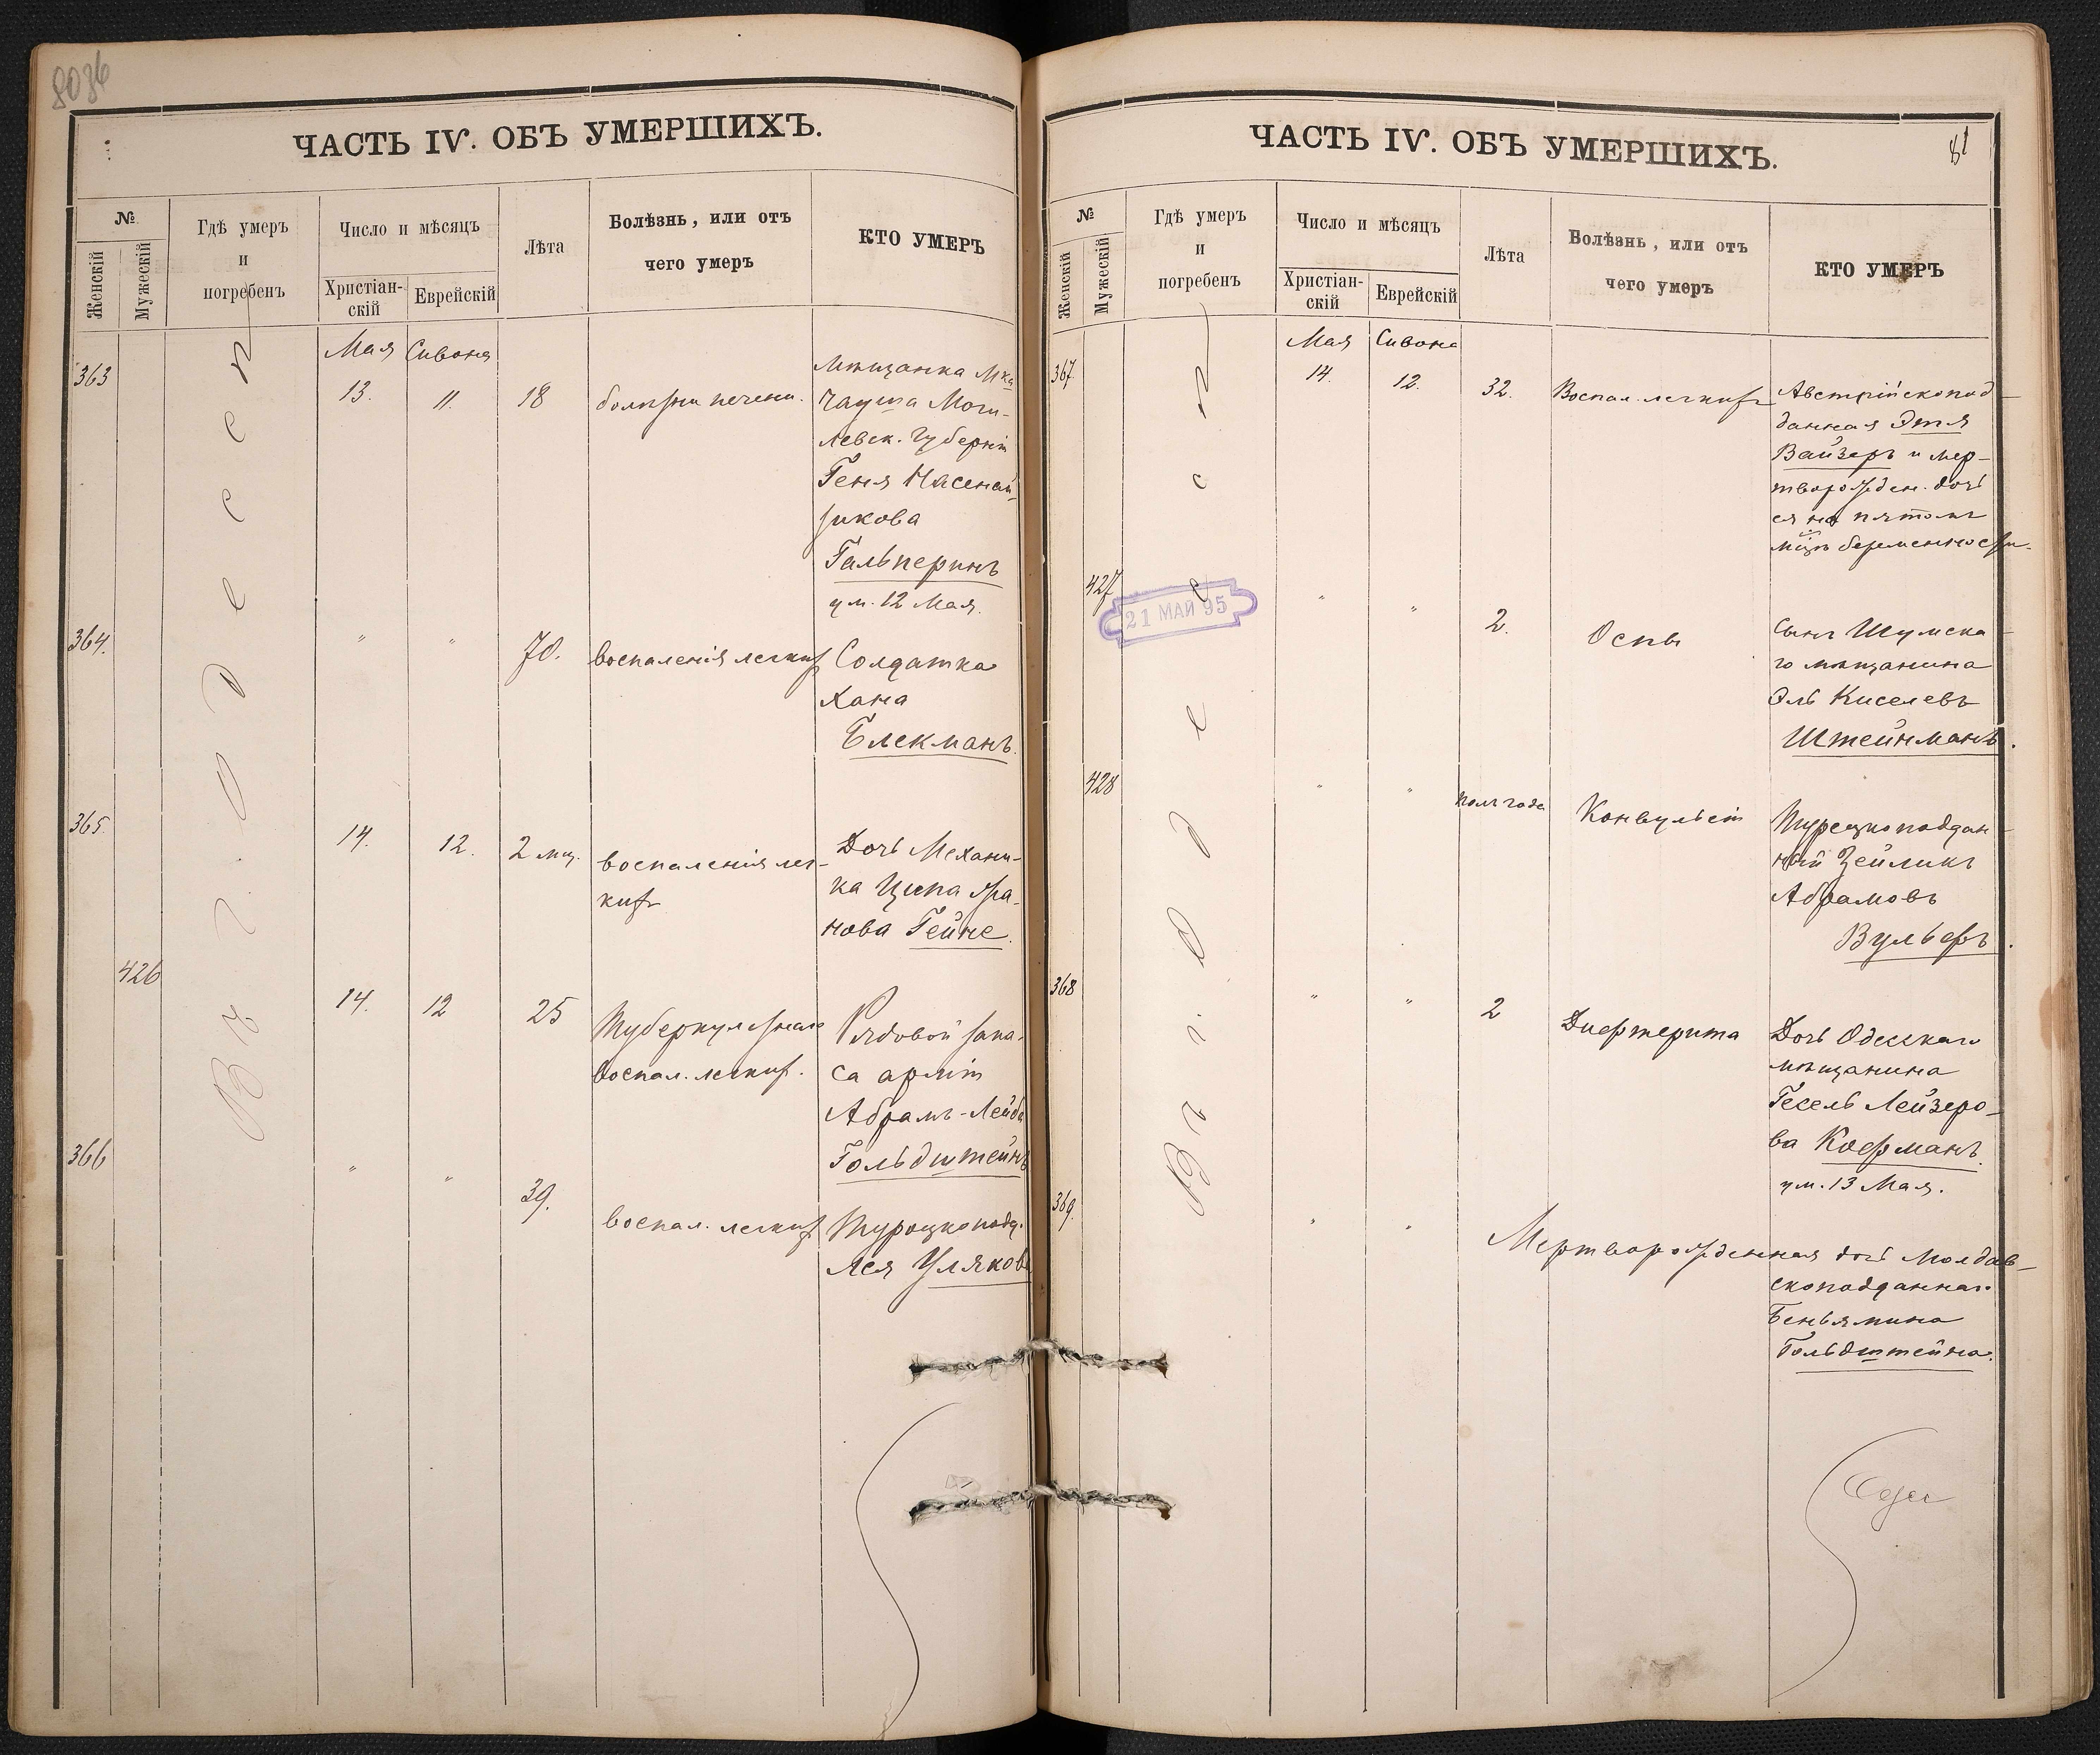 8036
ЧАСТЬ IV. ОБЪ УМЕРШИХЪ.
№
Женскій
Мужескій
Гдѣ умеръ
и
погребенъ
Число и мѣсяцъ
Христіан-
скій
Еврейскій
Лѣта
Болѣзнь, или отъ
чего умеръ
КТО УМЕРЪ
Въ г. Одессѣ
Мая Сивона
363 13. 11. 18 болѣзни печени.
Мѣщанка Мка
Чауса Моги-
левск. Губерніи
Геня
зикова
Гальперинъ
ум. 12 Мая.
364. " " 70. воспаленія легкихъ
Солдатка
Хана
Блекманъ.
365. 14. 12. 2 мц. воспаленія лег-
кихъ
Дочь Механи-
ка Ципа
нова Гейне.
426 14. 12 25 Туберкулезнаго
воспал. легких.
Рядовой запа-
са арміи
Абрамъ-Лейба
Гольдштейнъ
366 " " 39. воспал. легкихъ
Турецкоподд.
Лея Улякова
ЧАСТЬ IV. ОБЪ УМЕРШИХЪ.
81
№
Женскій
Мужескій
Гдѣ умеръ
и
погребенъ
Число и мѣсяцъ
Христіан-
скій
Еврейскій
Лѣта
Болѣзнь, или отъ
чего умеръ
КТО УМЕРЪ
Въ г. Одессѣ
Мая Сивона
367. 14. 12. 32. Воспал. легкихъ
Австрійскопод-
данная Этля
Вайзеръ и мер-
творожден. дочь
ея на пятомъ
мѣцѣ беременности.
427 " " 2. Оспы
21 МАЙ 95
Сынъ Шумска-
го мѣщанина
Эль Киселевъ
Штейнманъ.
428 " " полъ года Конвульсіи
Турецкоподдан-
ный Зейликъ
Абрамовъ
Вульферъ.
368 " " 2 Дифтерита
Дочь Одесскаго
мѣщанина
Гесель Лейзеро-
ва Кофманъ.
ум. 13 Мая.
369. " " Мертворожденная дочь Молдав-
скоподданнаго
Беньямина
Гольдштейна.